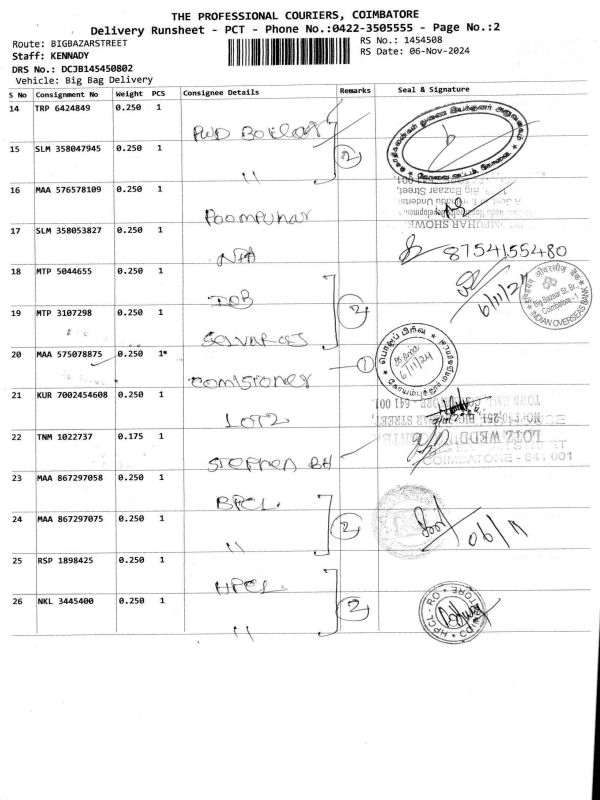 THE PROFESSIONAL COURIERS, COIMBATORE
Delivery Runsheet - PCT - Phone No.:0422-3505555 - Page No.:2
Route: BIGBAZARSTREET
RS No.: 1454508
Staff: KENNADY
RS Date: 06-Nov-2024
DRS No.: DCJB145450802
Vehicle: Big Bag Delivery
S No Consignment No Weight PCS Consignee Details Remarks Seal & Signature
14 TRP 6424849 0.250 1 PWD
15 SLM 358047945 0.250 1 " 2
16 MAA 576578109 0.250 1 Poompuhar
17 SLM 358053827 0.250 1 8754155480
18 MTP 5044655 0.250 1 IOB 2 6/11/24
Big Bazaar St. Br., Coimbatore - 1
INDIAN OVERSEAS BANK
19 MTP 3107298 0.250 1 Selvaraj
20 MAA 575078875 0.250 1* Comistoner 1
6/11/24
21 KUR 7002454608 0.250 1 LOTZ
LOTZ WEDD
COIMBATORE - 641 001
22 TNM 1022737 0.175 1 Stephen BH
23 MAA 867297058 0.250 1 BPCL.
24 MAA 867297075 0.250 1 " 2 06/11
25 RSP 1898425 0.250 1 HPCL.
26 NKL 3445400 0.250 1 " 2
HPCL-RO